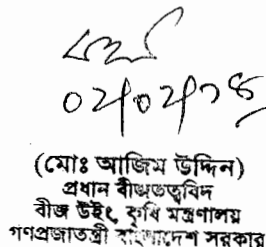 ০২/০২/১৪
(মোঃ আজিম উদ্দিন)
প্রধান বীজতত্ববিদ
বীজ উইং, কৃষি মন্ত্রণালয়
গণপ্রজাতন্ত্রী বাংলাদেশ সরকার